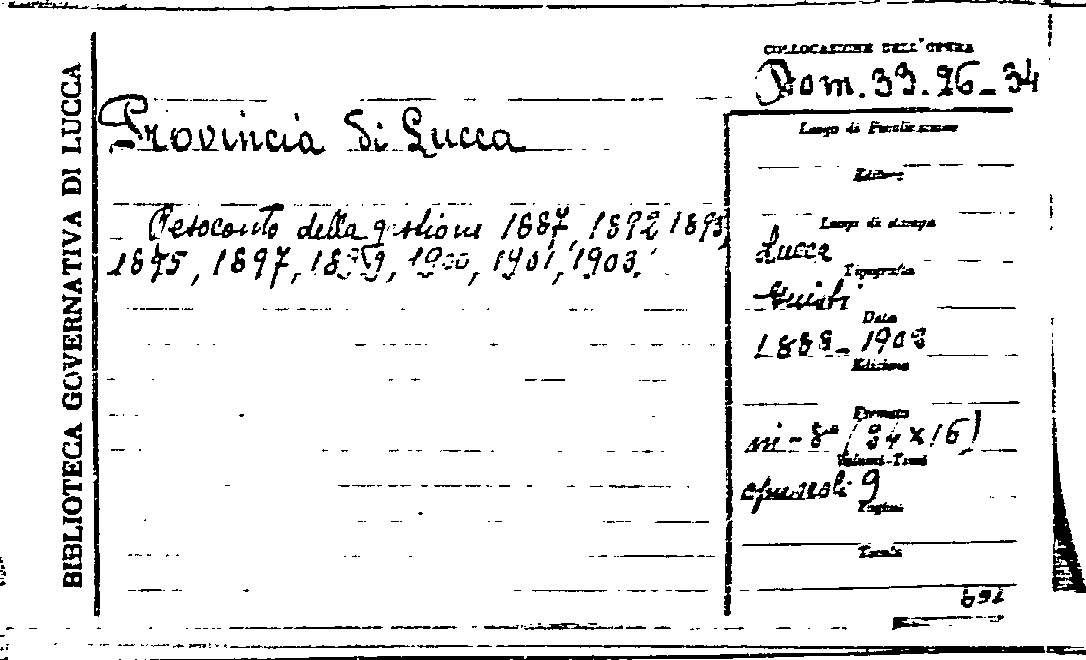 BIBLIOTECA GOVERNATIVA DI LUCCA
COLLOCAZIONE DELL'OPERA
Dom. 33. 26-34
Provincia di Lucca
Resoconto della gestione 1887, 1892 1893,
1895, 1897, 1899, 1900, 1901, 1903.
Luogo di Pubblicazione
Editore
Luogo di stampa
Lucca
Tipografia
Giusti
Data
1888-1903
Edizione
Formato
in-8° (24 x 16)
Volumi-Tomi
opuscoli 9
Pagine
Tavole